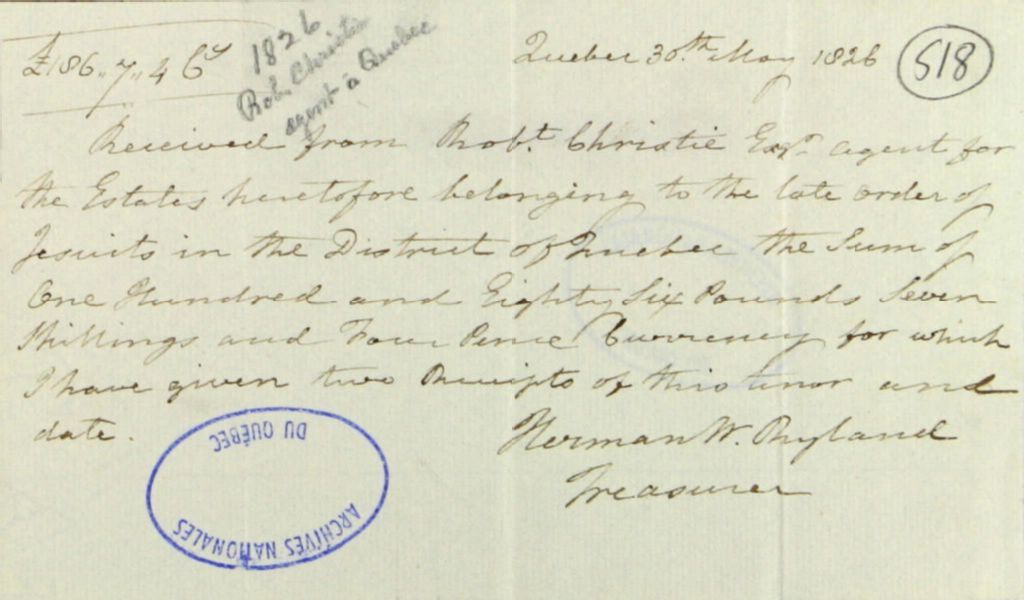 £186,,7,,4 Cy
1826
Rob. Christie
agent à Quebec
Quebec 30.th May 1826
518
Received from Rob.t Christie Esqr. agent for
the Estates heretofore belonging to the late order of
Jesuits in the District of Quebec the Sum of
One Hundred and Eighty Six Pounds Seven
Shillings and Four Pence Currency for which
I have given two Receipts of this tenor and
date.
Herman W. Ryland
Treasurer
ARCHIVES NATIONALES
DU QUÉBEC